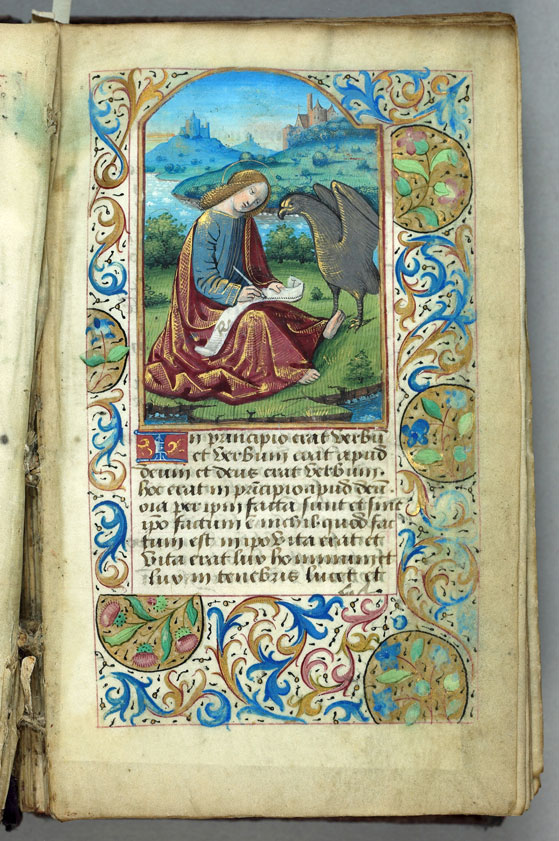 In principio erat verbū
et verbum erat apud
deum et deus erat verbum.
hoc erat in prīcipio apud deū.
oīa per ipm̄ facta sunt et sine
ipo factum ē nichil quod fac
tum est in ipo vita erat et
vita erat lux hominum et
lux in tenebris lucet et